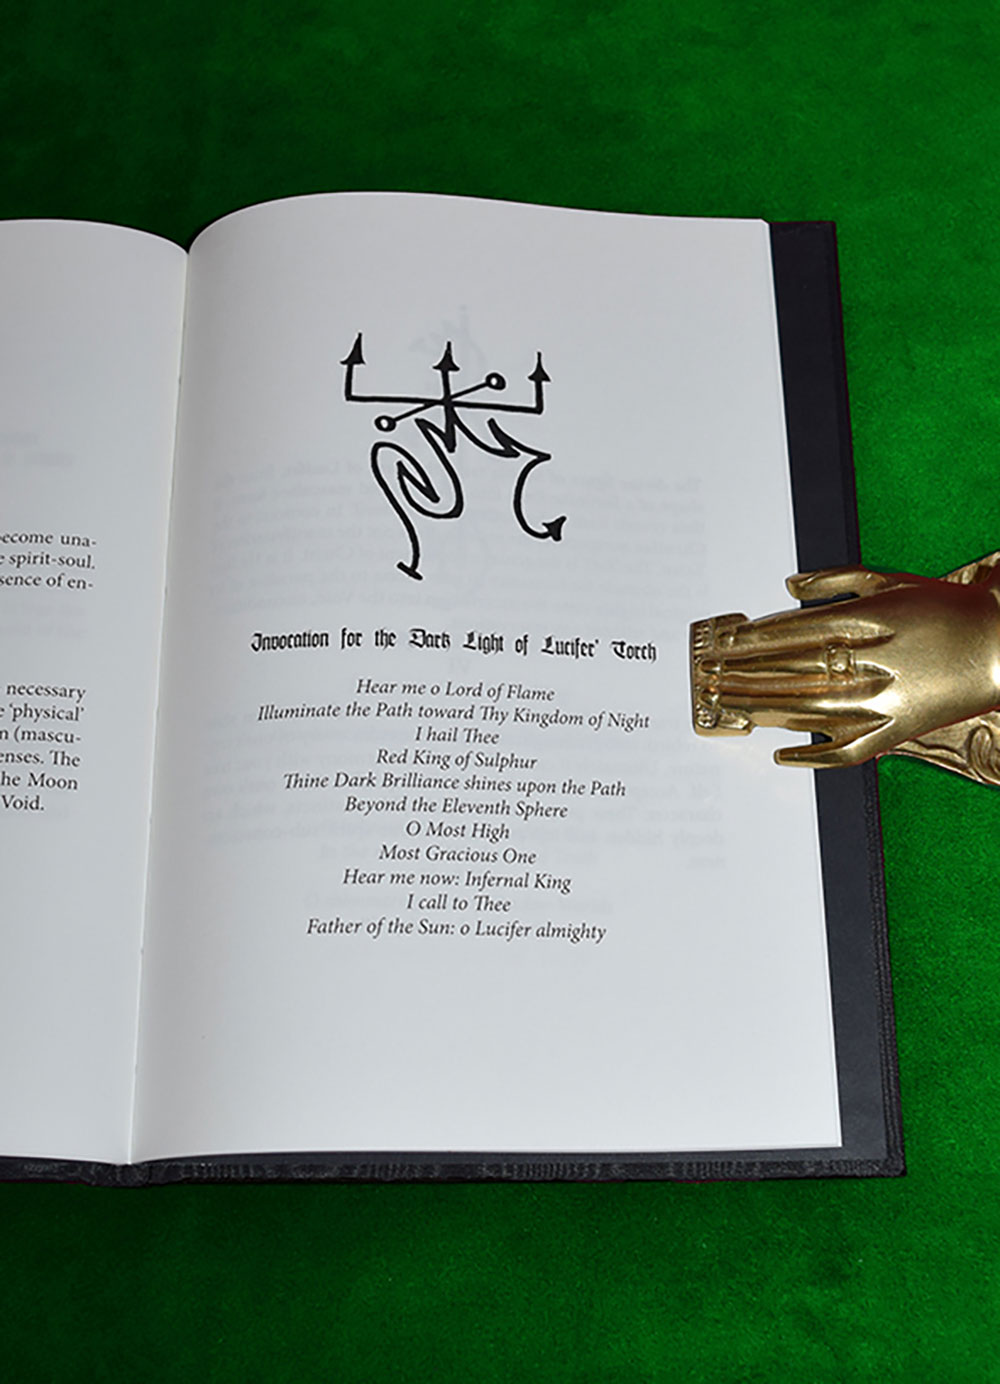 become una-
spirit-soul.
sence of en-
necessary
'physical'
(mascu-
enses. The
he Moon
Void.
Invocation for the Dark Light of Lucifer' Torch
Hear me o Lord of Flame
Illuminate the Path toward Thy Kingdom of Night
I hail Thee
Red King of Sulphur
Thine Dark Brilliance shines upon the Path
Beyond the Eleventh Sphere
O Most High
Most Gracious One
Hear me now: Infernal King
I call to Thee
Father of the Sun: o Lucifer almighty